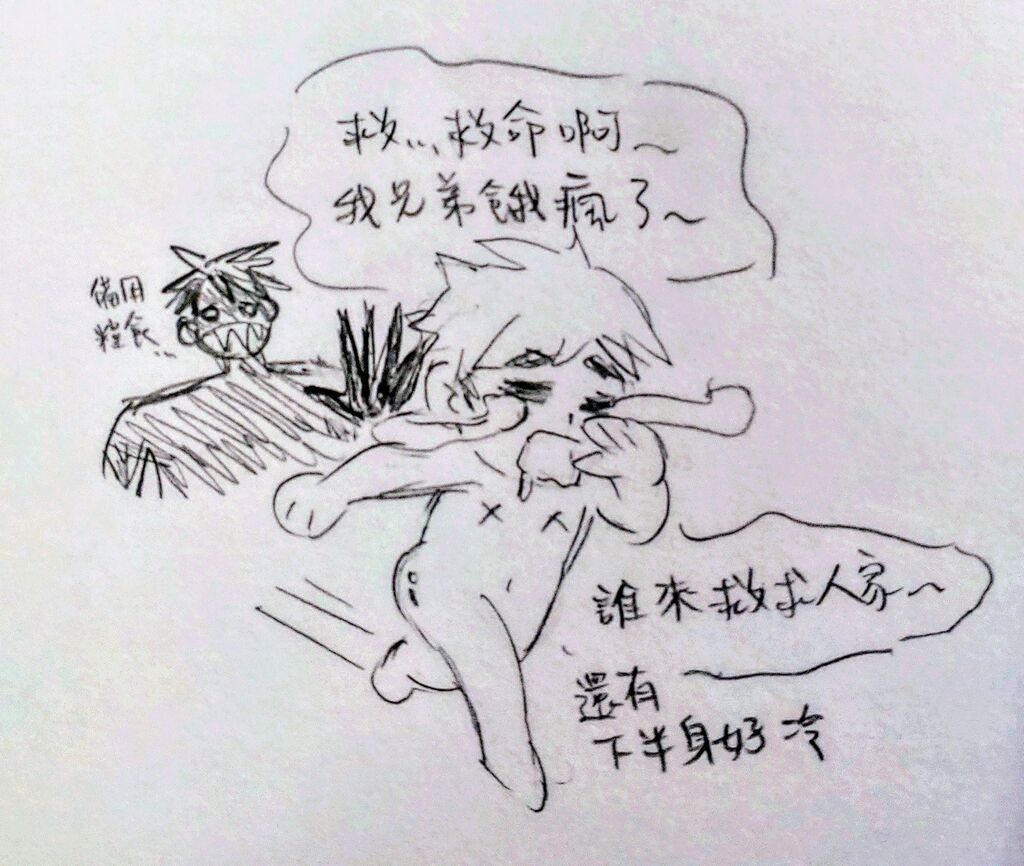 救...救命啊～
我兄弟餓瘋了～
備用
糧食...
誰來救救人家～
還有
下半身好冷